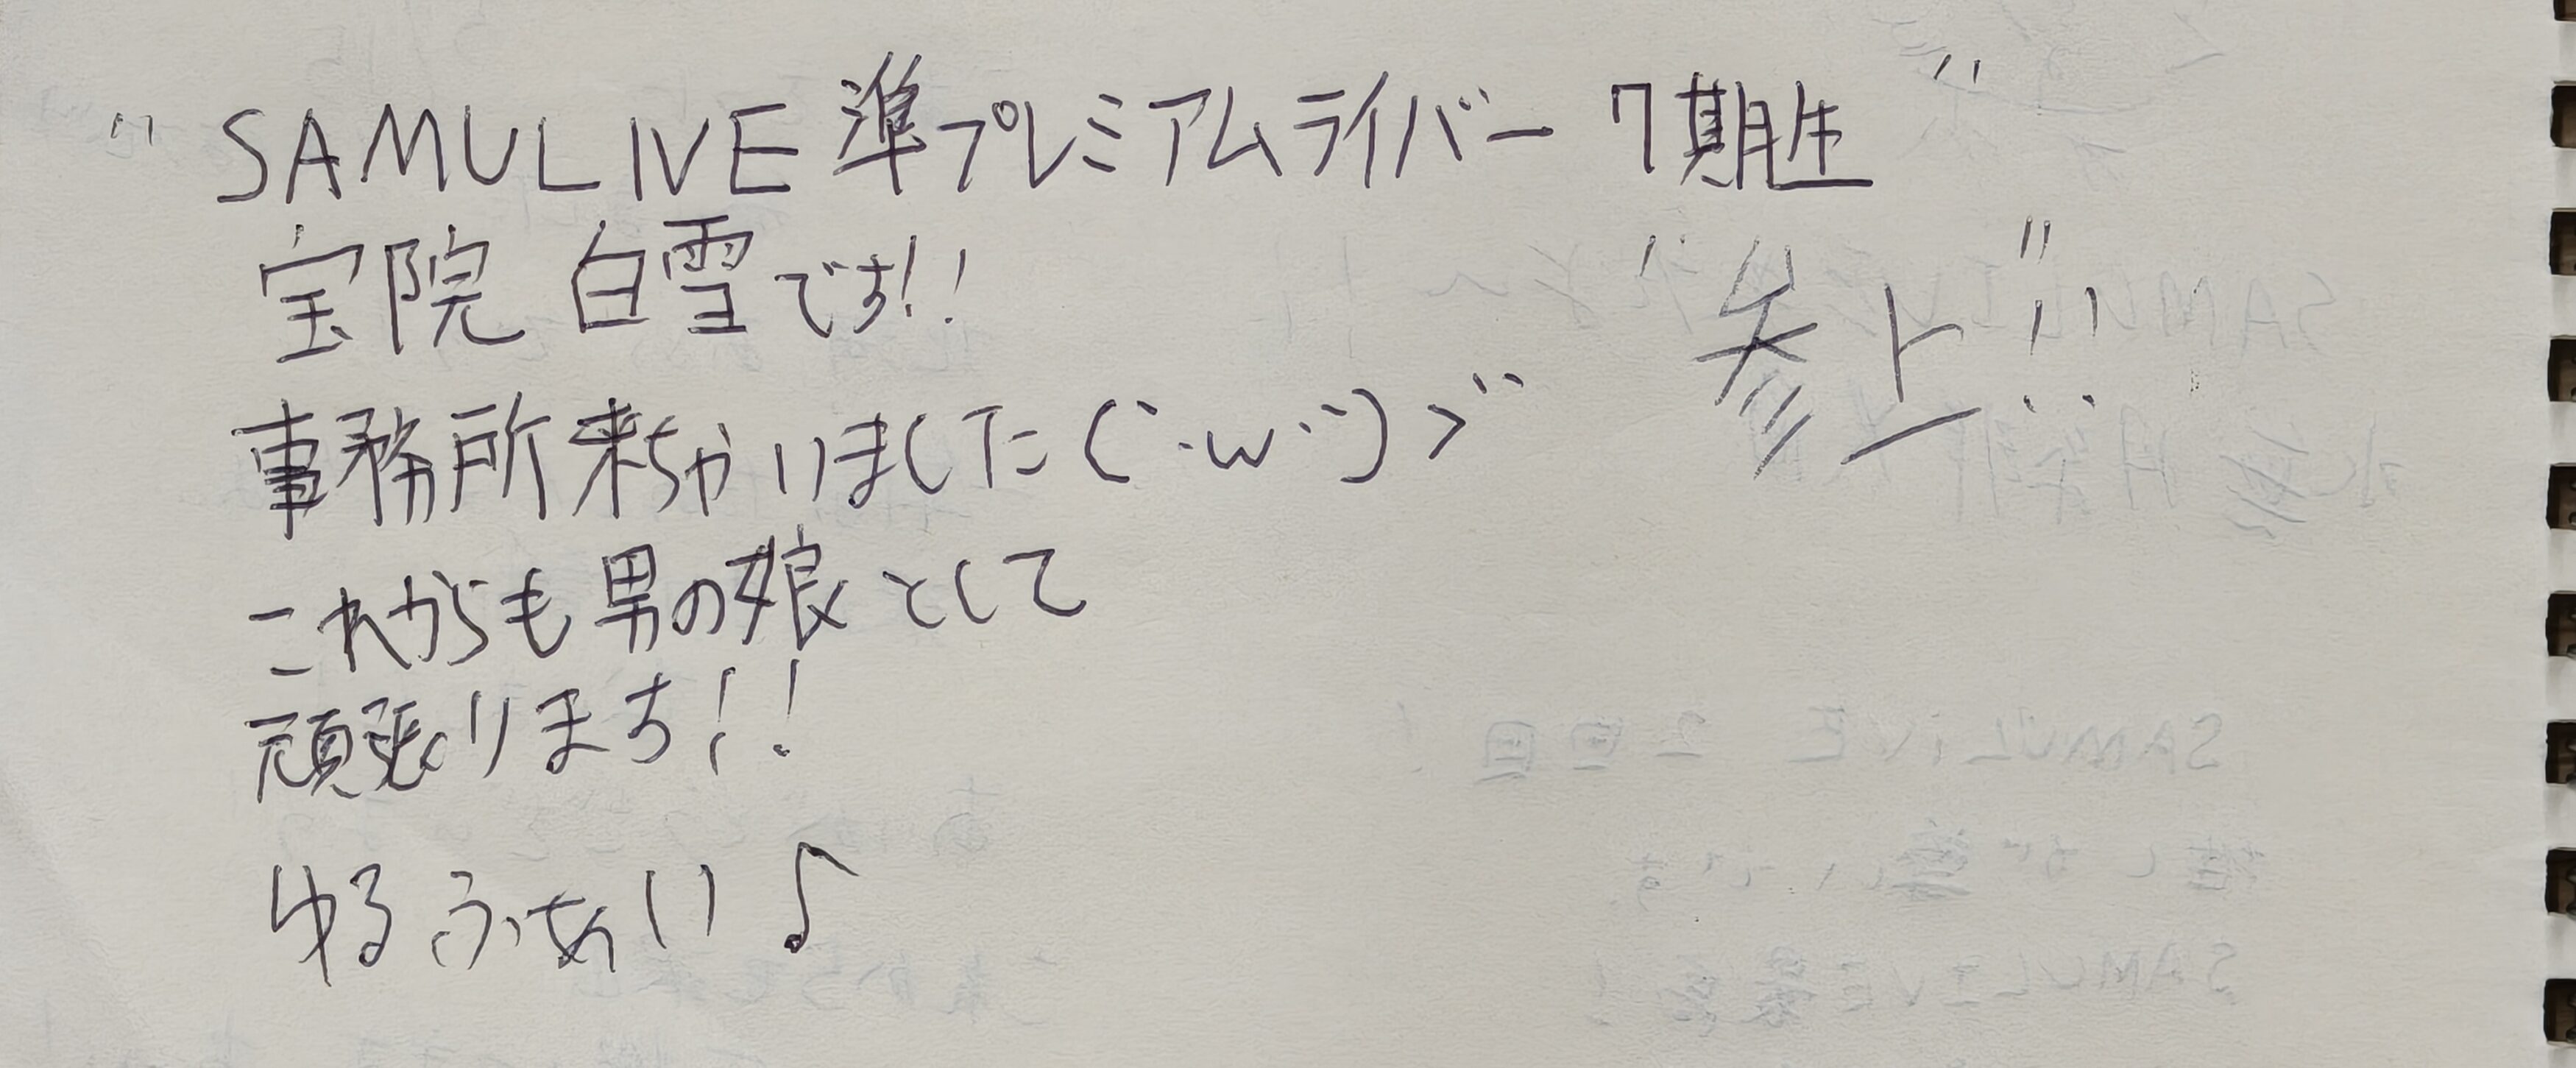 "SAMULIVE 準プレミアムライバー 7期生"
宝院 白雪です!!
"参上"!!
事務所来ちゃいました(`･ω･´)ゞ
これからも男の娘として
頑張りまち!!
ゆるふぁい♪